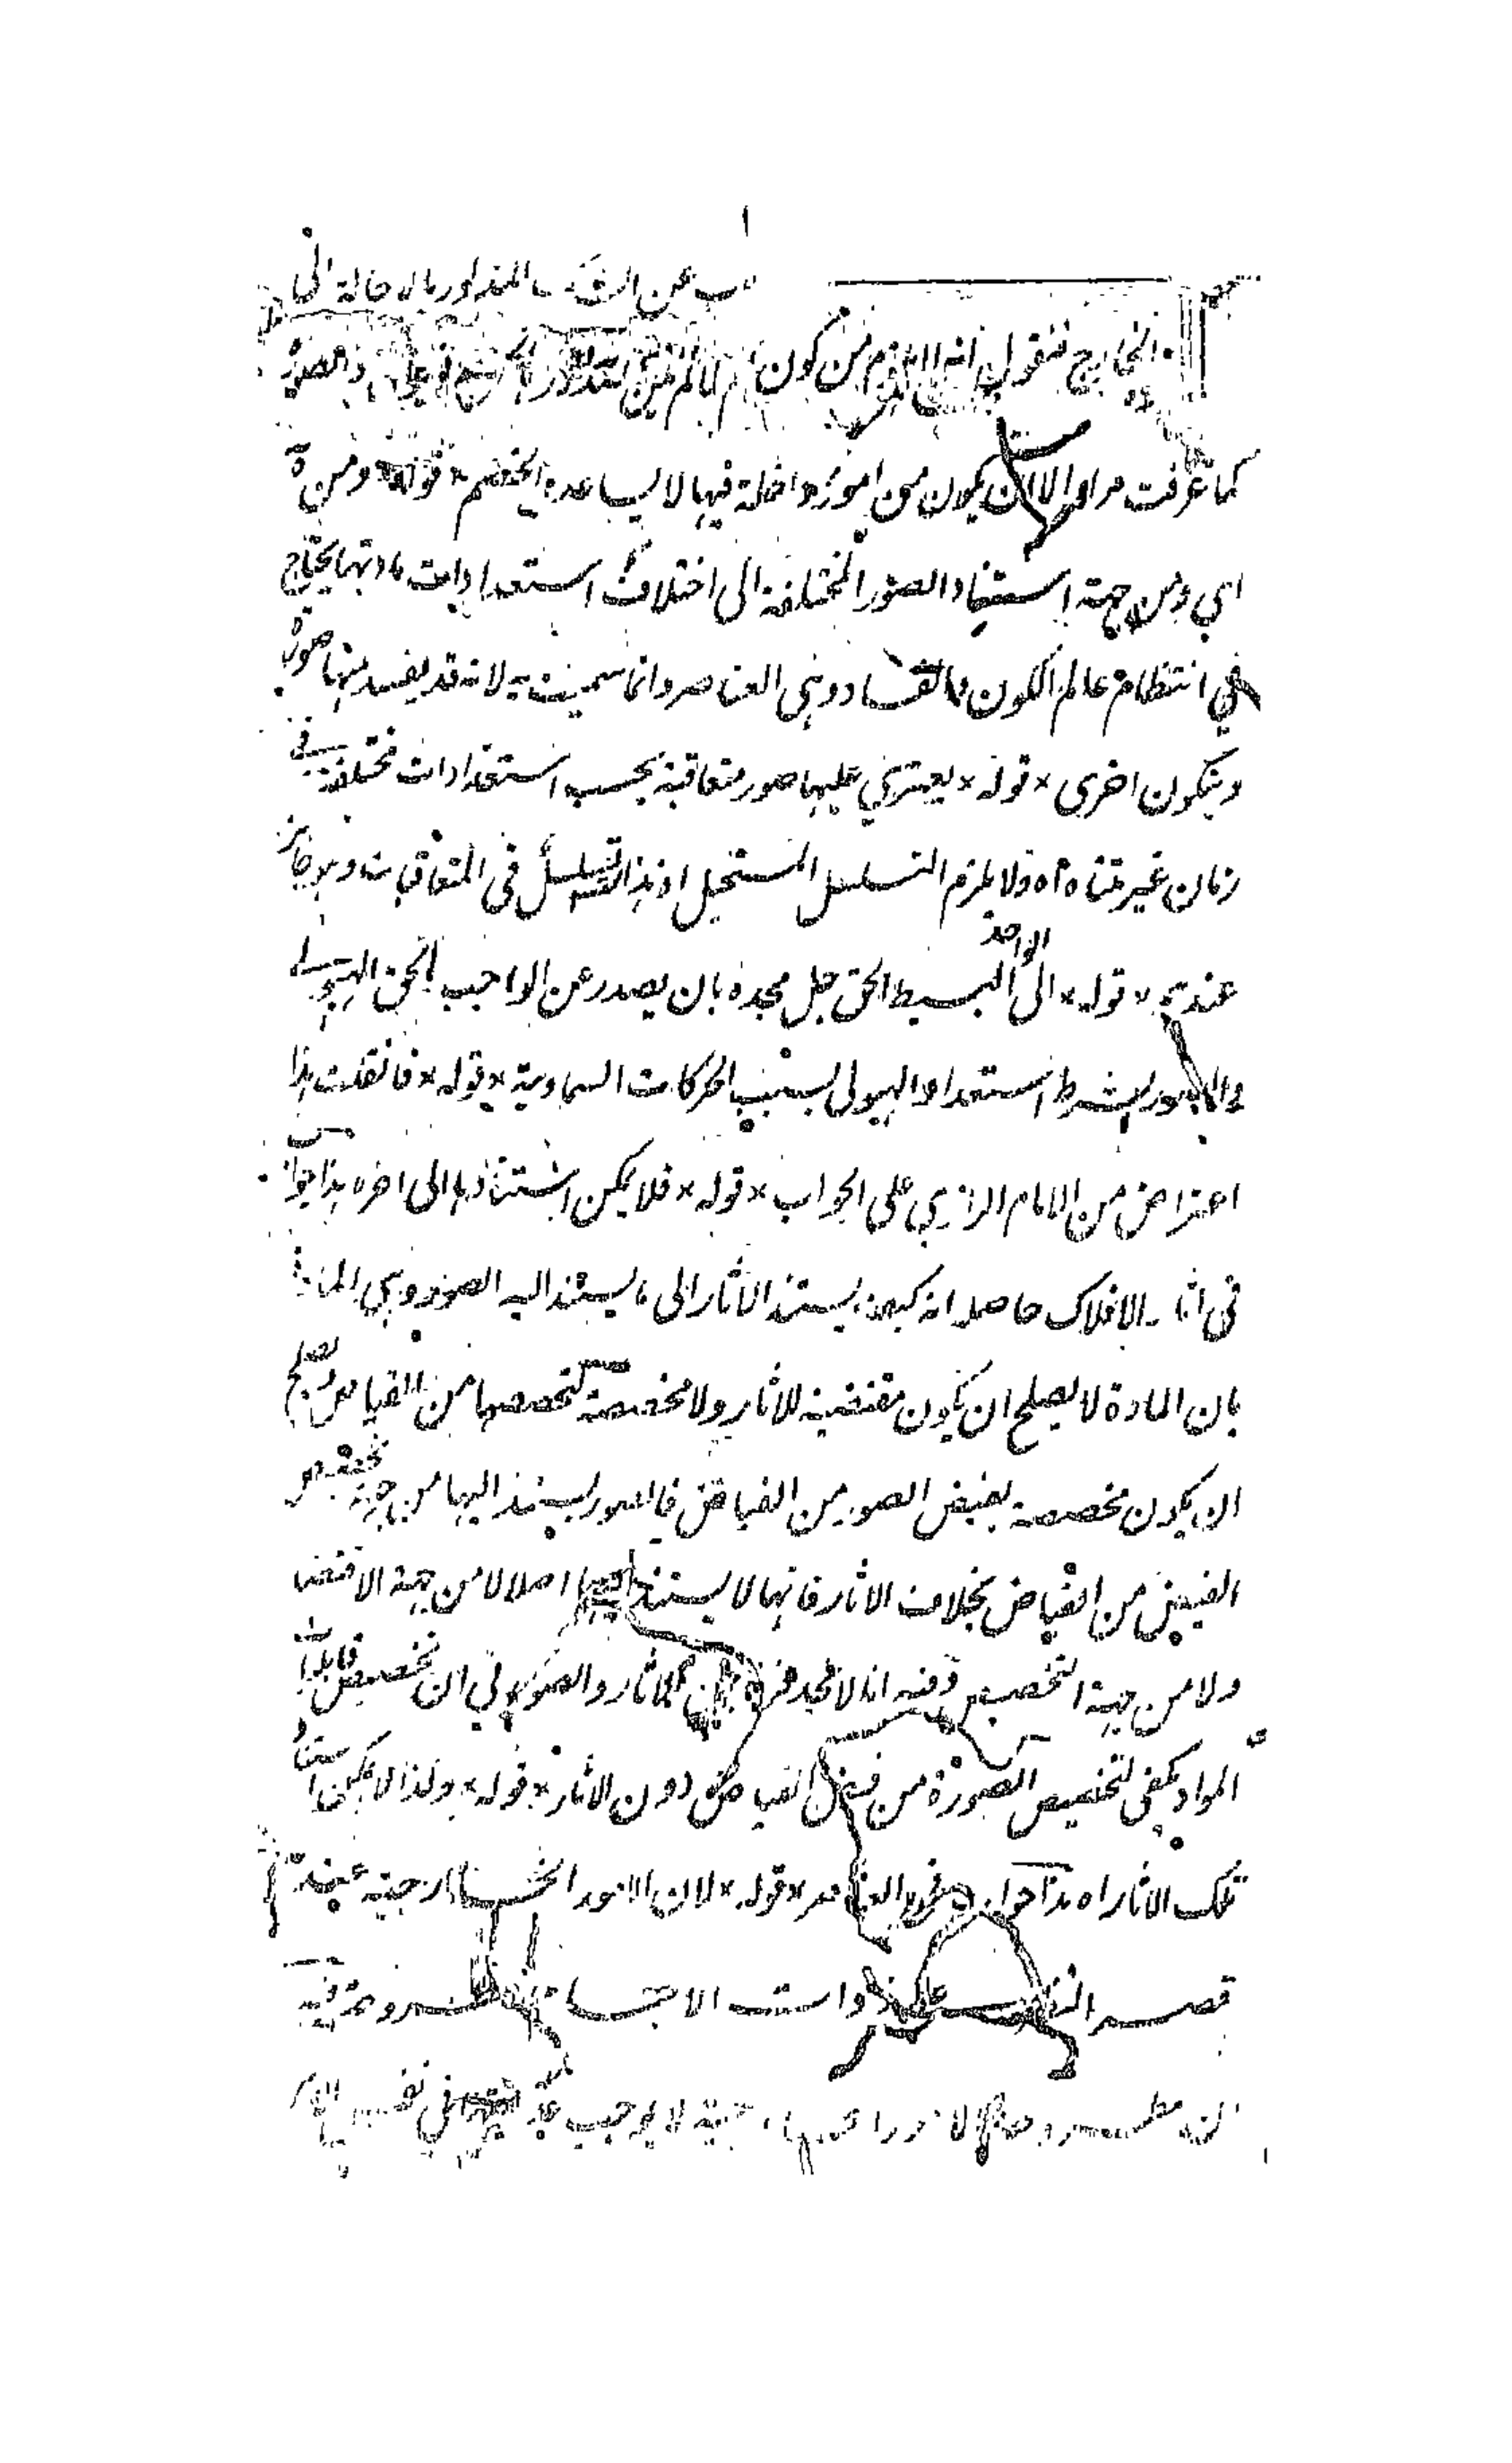 عن المذكور بالاحالة الى
الخارج فنقول انه لا يلزم من كون
كما عرفت مرارا الا ان يكون من امور داخلة فيها لا يساعده الخصم * قوله * ومن ثمة
اي ومن جهة استناد الصور المختلفة الى اختلاف استعدادات مادتها يحتاج
في انتظام عالم الكون والفساد وهي العناصر وانما سميت به لانه قد يفسد منها صورة
ويتكون اخرى * قوله * يعتري عليها صور متعاقبة بحسب استعدادات مختلفة في
زمان غير متناه اه ولا يلزم التسلسل المستحيل اذ هذا التسلسل في المتعاقبات وهو جائز
عندهم * قوله * الى الواحد البسيط الحق جل مجده بان يصدر عن الواجب الحق الهيولى
والصور بشرط استعداد الهيولى بسبب الحركات السماوية * قوله * فان قلت هذا
اعتراض من الامام الرازي على الجواب * قوله * فلا يمكن استنادها الى اخره هذا جواب
في الافلاك حاصله انه كيف يستند الآثار الى ما يستند اليه الصور وهي
بان المادة لا يصلح ان يكون مقتضية للآثار ولا مخصصة لتخصصها من الفياض نعم يصلح
ان يكون مخصصة بفيض الصور من الفياض فالصور يستند اليها من جهة تخصيص
الفيض من الفياض بخلاف الآثار فانها لا يستند اليها اصلا لا من جهة الاقتضا
ولا من جهة التخصيص وفيه انا لا نجد فرقا بين الآثار والصور في ان تخصيص قابلية
المواد يكفي لتخصيص الصورة من فيض الفياض دون الآثار * قوله * ولذا لا يمكن استناد
تلك الآثار اه هذا جواب في العناصر * قوله * لان الامور الخارجية عند
قصر النظر على ذوات الاجسام
ان لا يوجب في نفس الامر